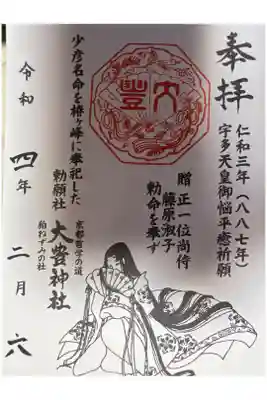 奉拝
仁和三年(八八七年)
宇多天皇御悩平癒祈願
贈正一位尚侍
藤原淑子
勅命を奉ず
大豊
少彦名命を椿ヶ峰に奉祀した
勅願社
大豊神社
京都哲学の道
狛ねずみの社
令和四年二月六